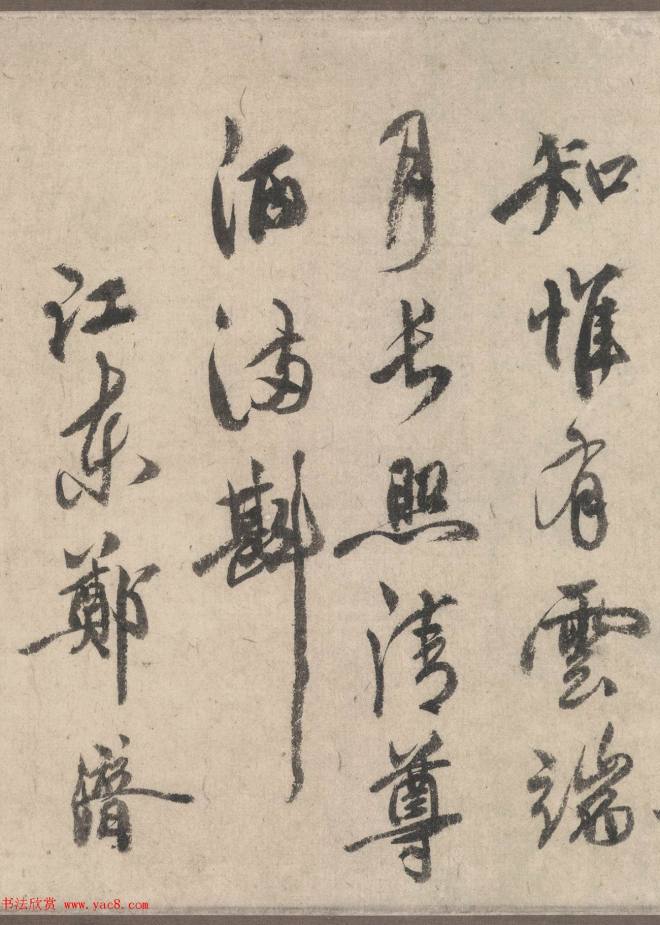 知惟有雲端
月長照清尊
酒滿斟
江東鄭潛
书法欣赏 www.yac8.com